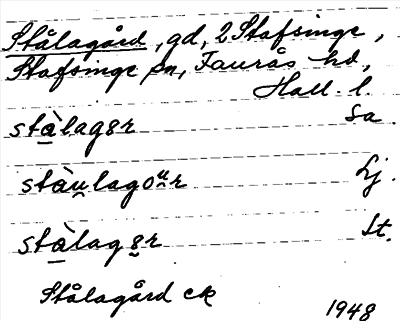 Stålagård, gd, 2 Stafsinge,
Stafsinge sn, Faurås hd,
Hall. l.
stàlagɜr Sa.
stàu̯lagou̯r Lj.
stàlagɜr St.
Stålagård ck
1948